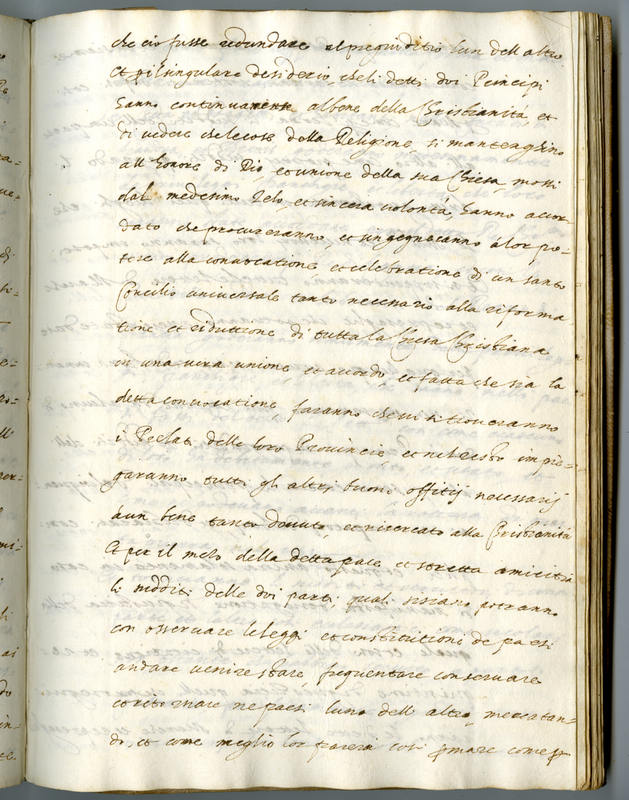 che ciò fusse redundare al pregiuditio l'un dell'altro
Et p il singulare desiderio, che li detti doi Principi
hanno continuamente al bene della Christianità, et
di vedere che le cose della Religione si mantenghino
all'honore di Dio, et unione della sua Chiesa, mossi
dal medesimo Zelo, et sincera volontà, hanno accor-
dato che procureranno, et ingegneranno à lor po-
tere alla convocatione, et celebratione di un santo
Concilio universale tanto necessario alla riforma
tione et riduttione di tutta la Chiesa Christiana
in una vera unione, et accordo, et fatta che sia la
detta convocatione, faranno che vi si troveranno
i Prelati delle loro Provincie, et nel resto impie-
garanno tutti gli altri buoni offitij necessarij
à un bene tanto dovuto, et ricercato alla Christianità
Et per il mezo della detta pace, et stretta amicitia
li sudditi delle doi parti, quali si siano potranno
con osservare le leggi et constitutioni de paesi
andare venire stare, frequentare conservare
et ritornare ne paesi l'uno dell'altro, mercatan-
do, et come meglio lor parerà così p mare come p